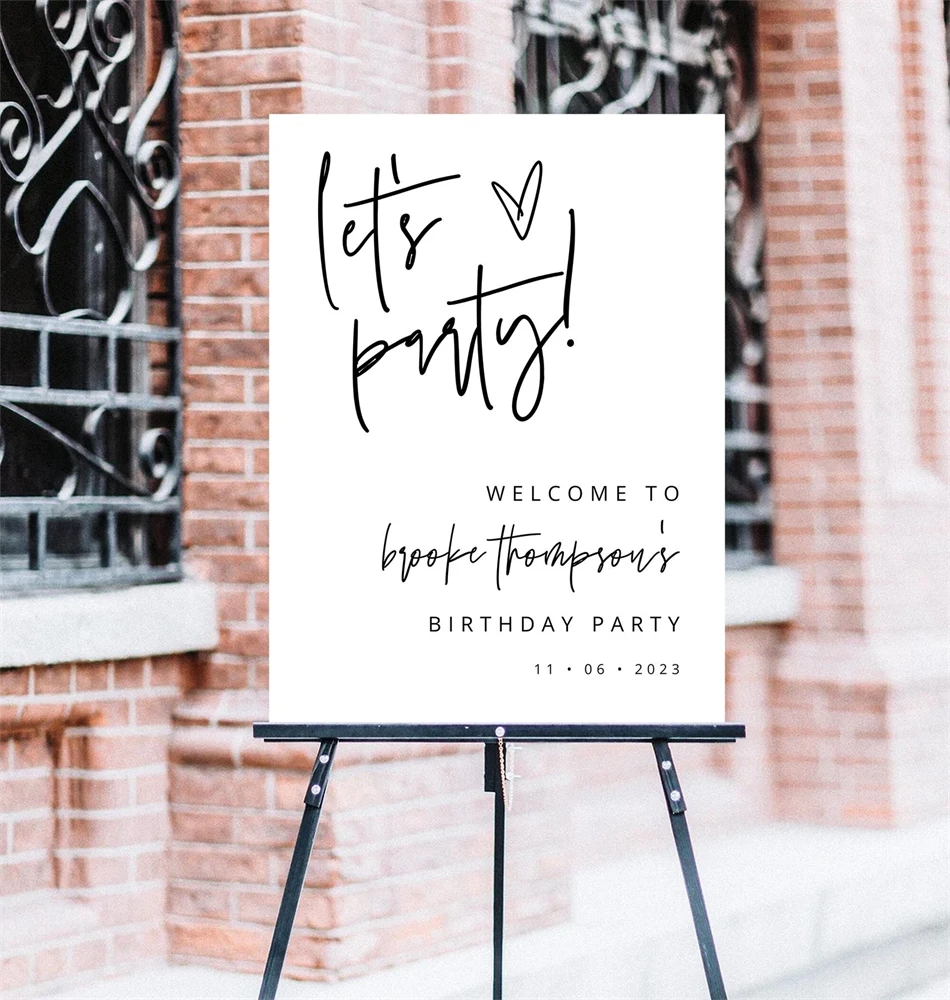 let's
party!
WELCOME TO
brooke thompson's
BIRTHDAY PARTY
11 • 06 • 2023